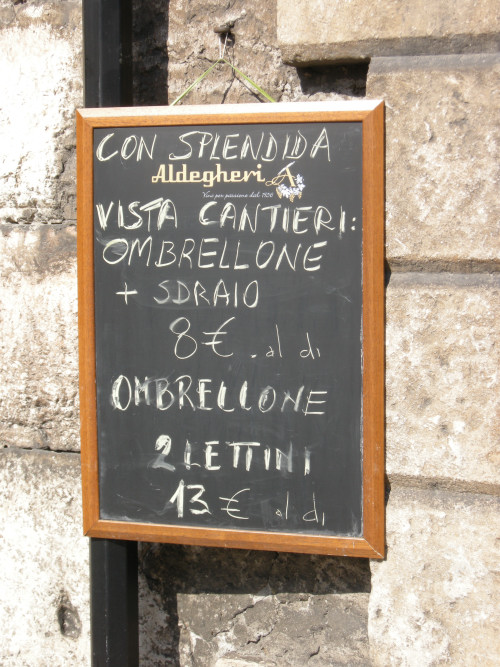 CON SPLENDIDA
Aldegheri A
Vino per passione dal 1956
VISTA CANTIERI:
OMBRELLONE
+ SDRAIO
8€ . al dì
OMBRELLONE
2 LETTINI
13 € al dì